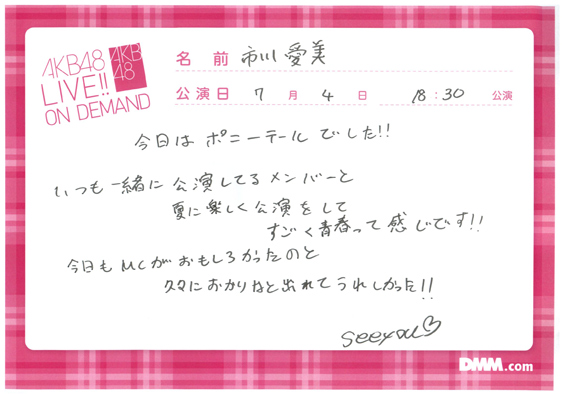 AKB48
LIVE!!
ON DEMAND
AKB
48
名前 市川愛美
公演日 7月4日 18:30 公演
今日はポニーテールでした!!
いつも一緒に公演してるメンバーと
夏に楽しく公演をして
すごく青春って感じです!!
今日もMCがおもしろかったのと
久々におかりなと出れてうれしかった!!
see you♡
DMM.com